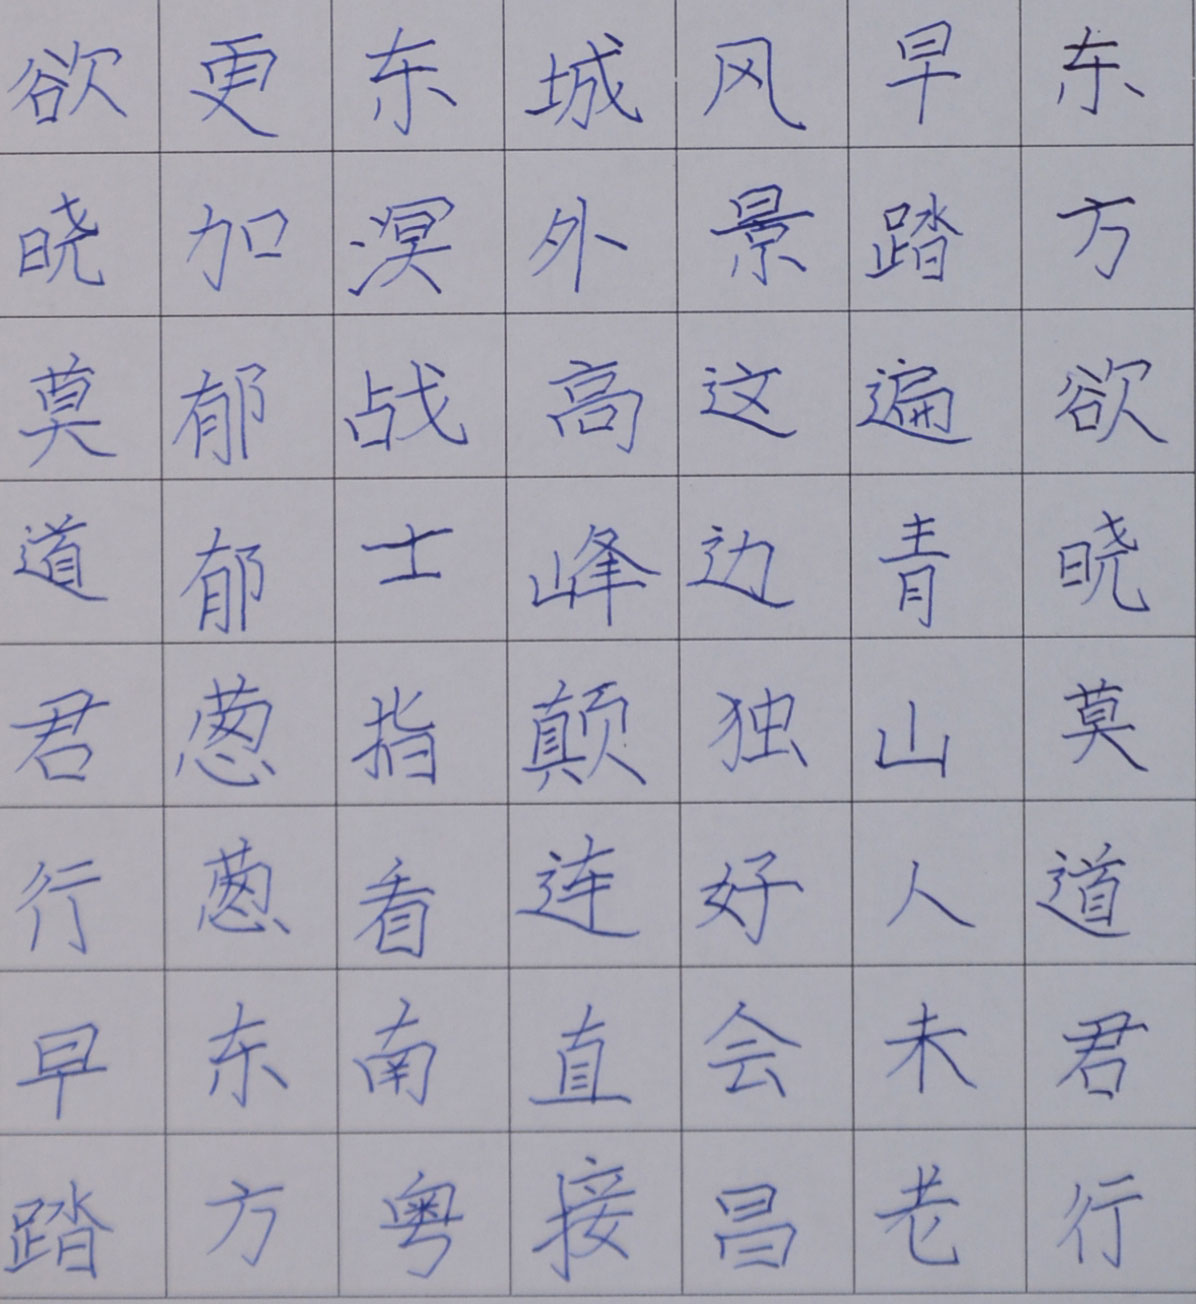 东方欲晓莫道君行
早踏遍青山人未老
风景这边独好会昌
城外高峰颠连直接
东溟战士指看南粤
更加郁郁葱葱东方
欲晓莫道君行早踏